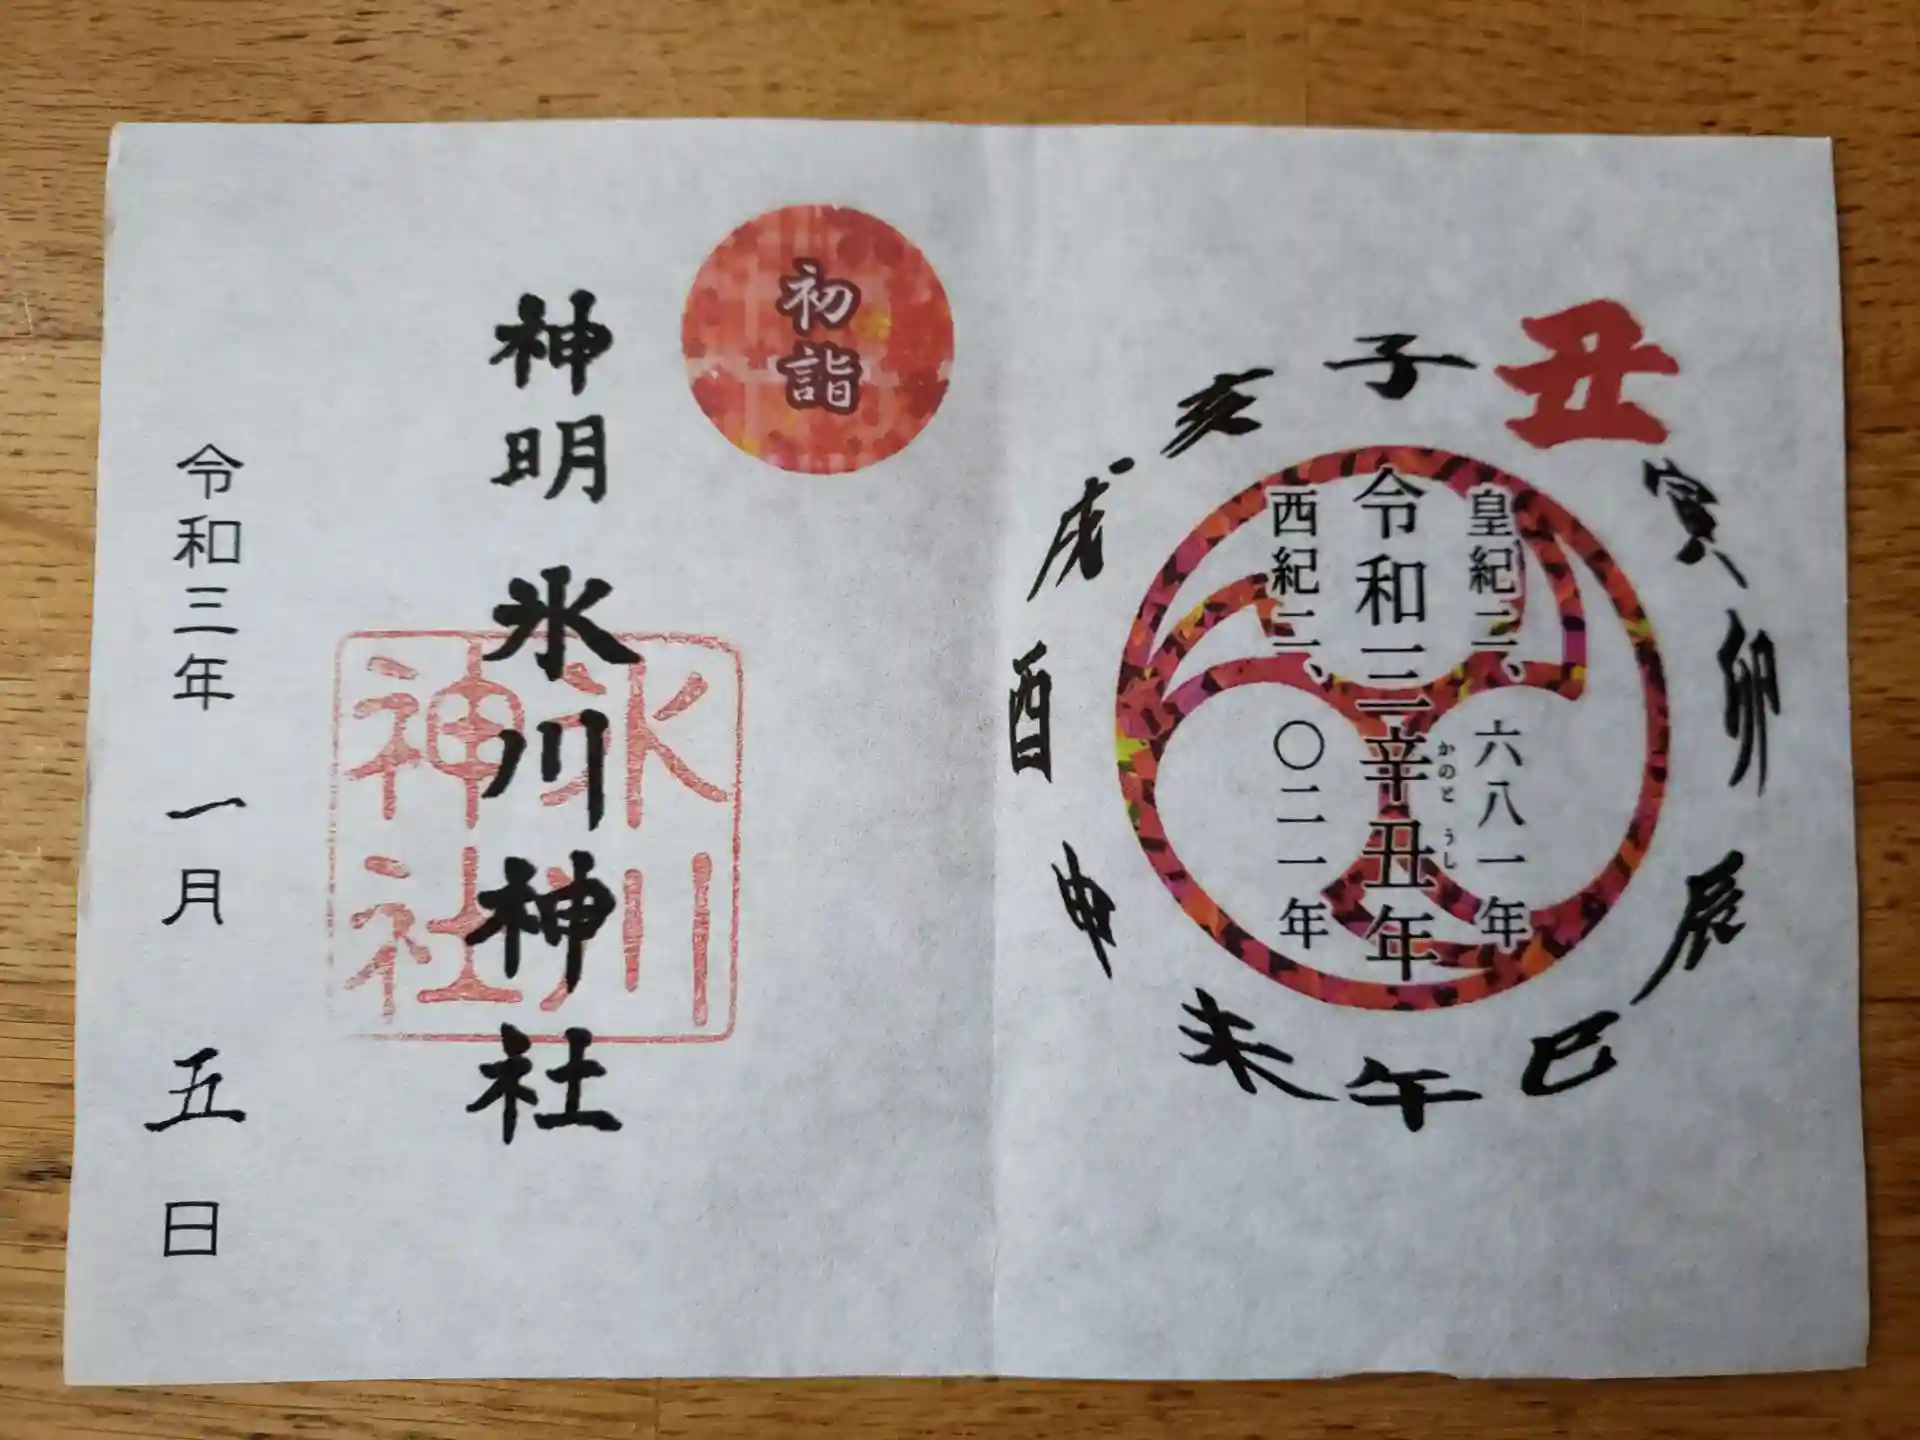 丑
寅
卯
辰
巳
午
未
申
酉
戌
亥
子
皇紀二、六八一年
令和三辛丑年
かのと うし
西紀二、〇二一年
初詣
神明 氷川神社
氷川
神社
令和三年 一月 五日